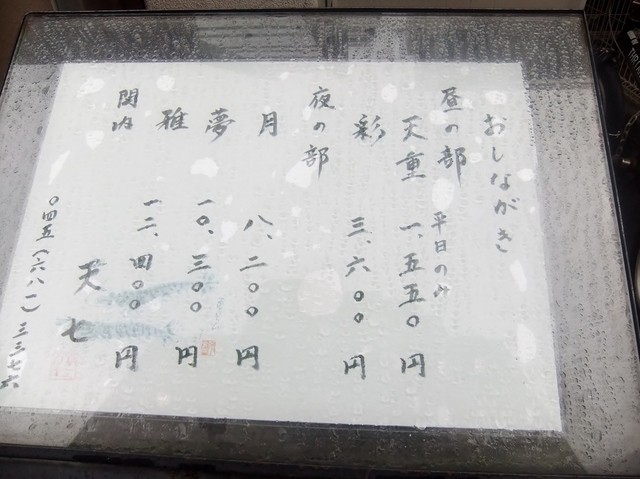 おしながき
昼の部
平日のみ
天重 一、五五〇円
彩 三、六〇〇円
夜の部
月 八、二〇〇円
夢 一〇、三〇〇円
雅 一二、四〇〇円
関内 天七
〇四五(六八一)三三七六